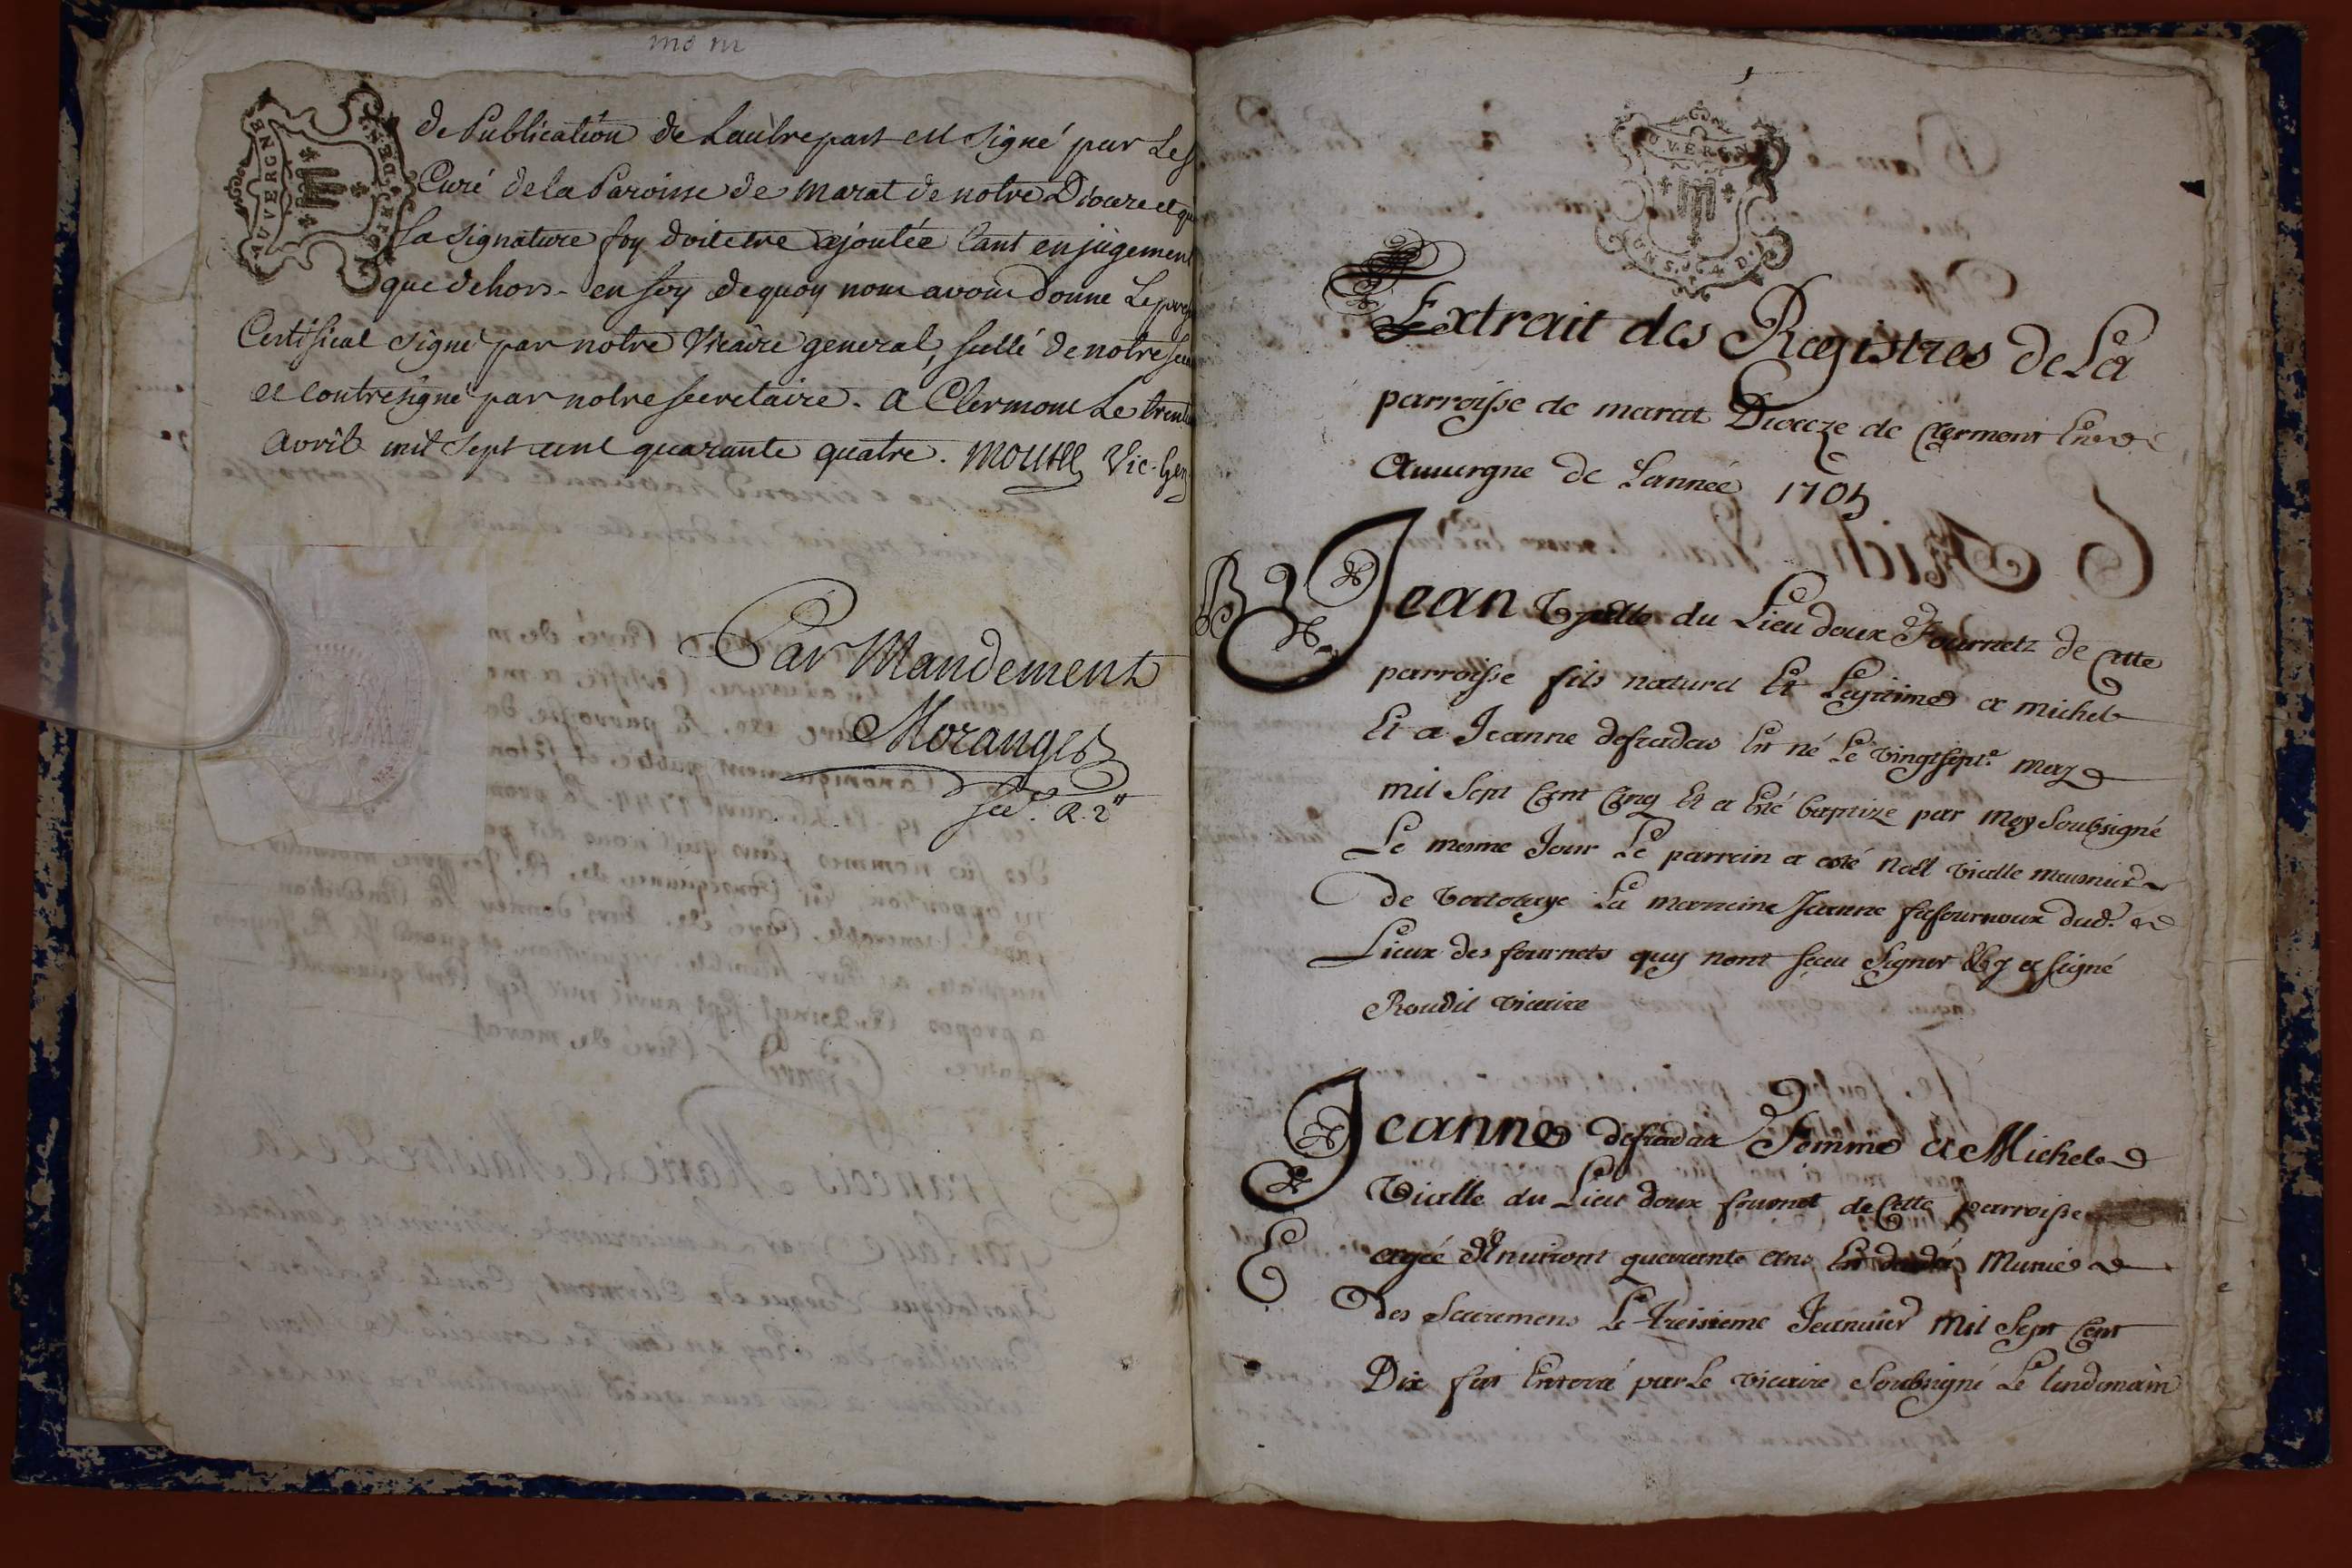 AUVERGNE
de Publication de Lautre part est signé par Le S
Curé de la Paroisse de marat de notre Diocese et qu
sa signature foy doit etre ajoutée tant en jugement
que dehors. en foy de quoy nous avons donné Le pres
Certificat signé par notre Vicaire general, scellé de notre sceau
et contresigné par notre secretaire. a Clermont Le trente
avril mil sept cent quarante quatre. Vic. Gen
Par Mandement
Moranges
Extrait des Registres de La
parroisse de marat Dioceze de Clermont En
Auvergne de Lannée 1705
Jean Vialle du Lieu doux Fournetz de Cette
parroisse fils naturel Et Legitime a michel
Et a Jeanne defradas Est né Le vingt sept.e may
mil Sept Cent Cinq Et a Esté baptize par moy Soubsigné
Le mesme Jour Le parrain a esté noël vialle meusnier
de La marraine Jeanne dud.
Lieux des fournets quy nont sceu signer a signé
Roudil vicaire
Jeanne defradas Femme a Michel
Vialle du Lieu doux fournet de Cette parroisse
agée d'Environt quarante ans Munie
des Sacremens Le treisieme Jeanvier Mil Sept Cent
Dix fut Enterré par Le vicaire Soubsigné Le lendemain